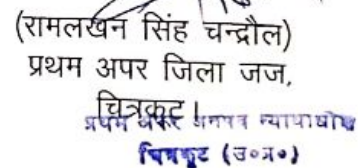 (रामलखन सिंह चन्द्रौल)
प्रथम अपर जिला जज,
चित्रकूट।
प्रथम अपर जनपद न्यायाधीश
चित्रकूट (उ०प्र०)